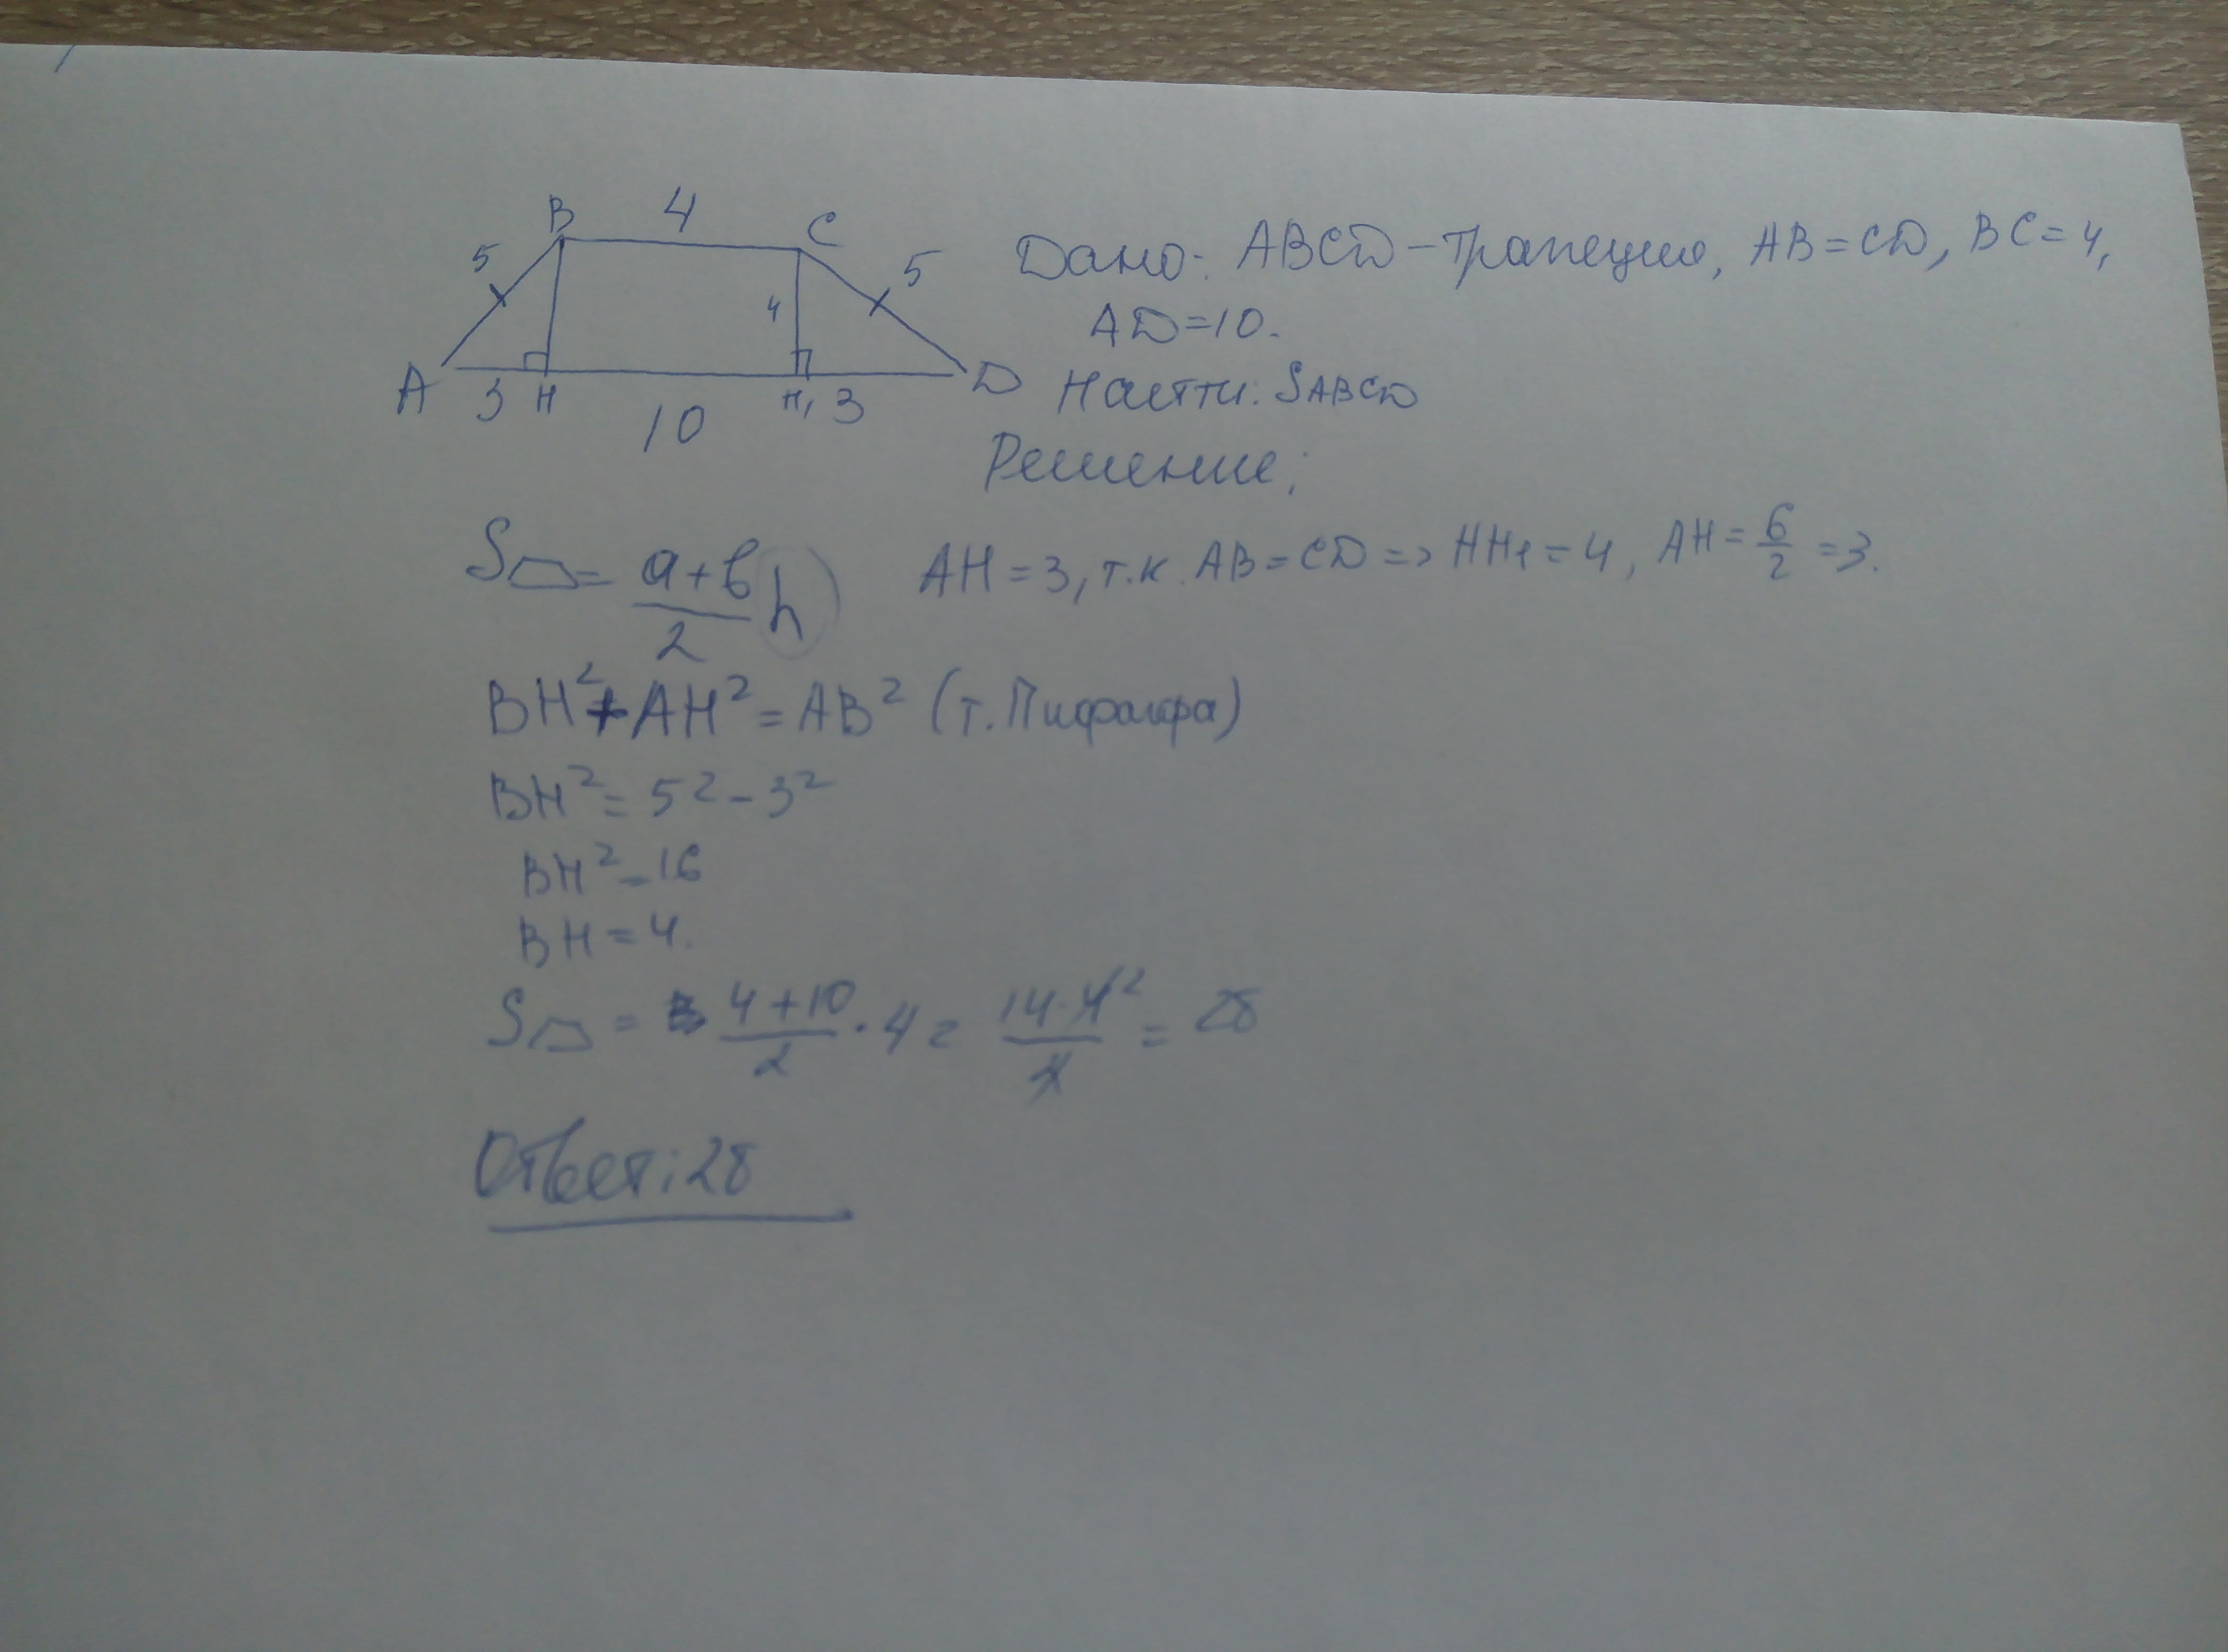 B 4 C
5 4 5
A 3 H 10 H₁ 3 D
Дано: ABCD – трапеция, AB = CD, BC = 4,
AD = 10.
Найти: SABCD
Решение:
S⏢ = a+b/2 h
AH = 3, т.к. AB = CD => HH₁ = 4, AH = 6/2 = 3.
BH² + AH² = AB² (т. Пифагора)
BH² = 5² – 3²
BH² = 16
BH = 4.
S⏢ = 4+10/2 · 4 = 14·4²/2 = 28
Ответ: 28